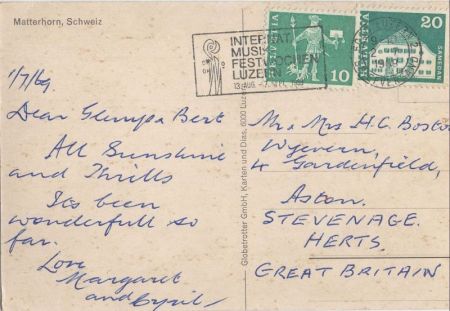 Matterhorn, Schweiz
1/7/69
Dear Glenys & Bert
All Sunshine
and Thrills
Its been
wonderfull so
far.
Love
Margaret
and Cyril
Globetrotter GmbH, Karten und Dias, 6000 Luzern
INTERNAT.
MUSIK
FESTWOCHEN
LUZERN
HELVETIA
10
HELVETIA
20
SAMEDAN
Mr & Mrs H.C. Bostock
Wyevern,
4 Gardenfield,
Aston.
STEVENAGE.
HERTS.
GREAT BRITAIN